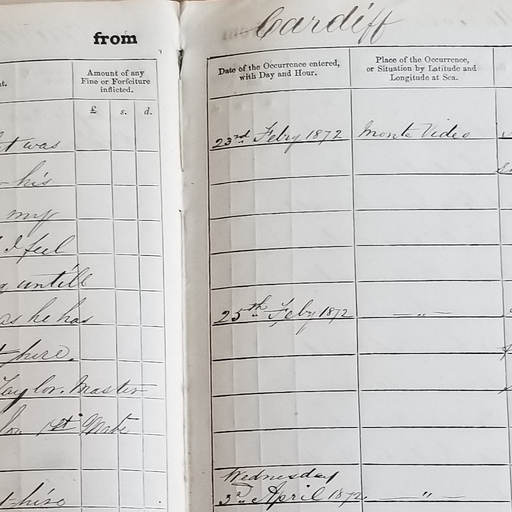 from
t.
Amount of any
Fine or Forfeiture
inflicted.
£ s. d.
t was
his
my
I feel
untill
as he has
here.
Taylor. Master
1st Mate
this
Cardiff
Date of the Occurrence entered,
with Day and Hour.
Place of the Occurrence,
or Situation by Latitude and
Longitude at Sea.
23rd Feby 1872 Monte Video
25th Feby 1872 — " —
Wednesday
3rd April 1872. — " —